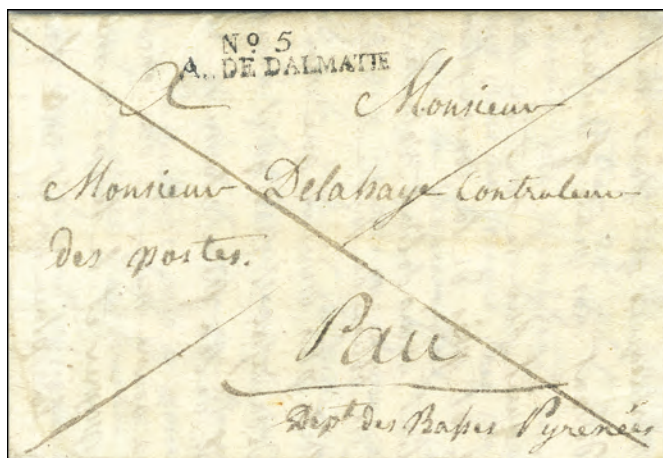 Nº 5
A.. DE DALMATIE
A Monsieur
Monsieur Delahaye Controleur
des postes.
Pau
Dept des Basses Pyrenées